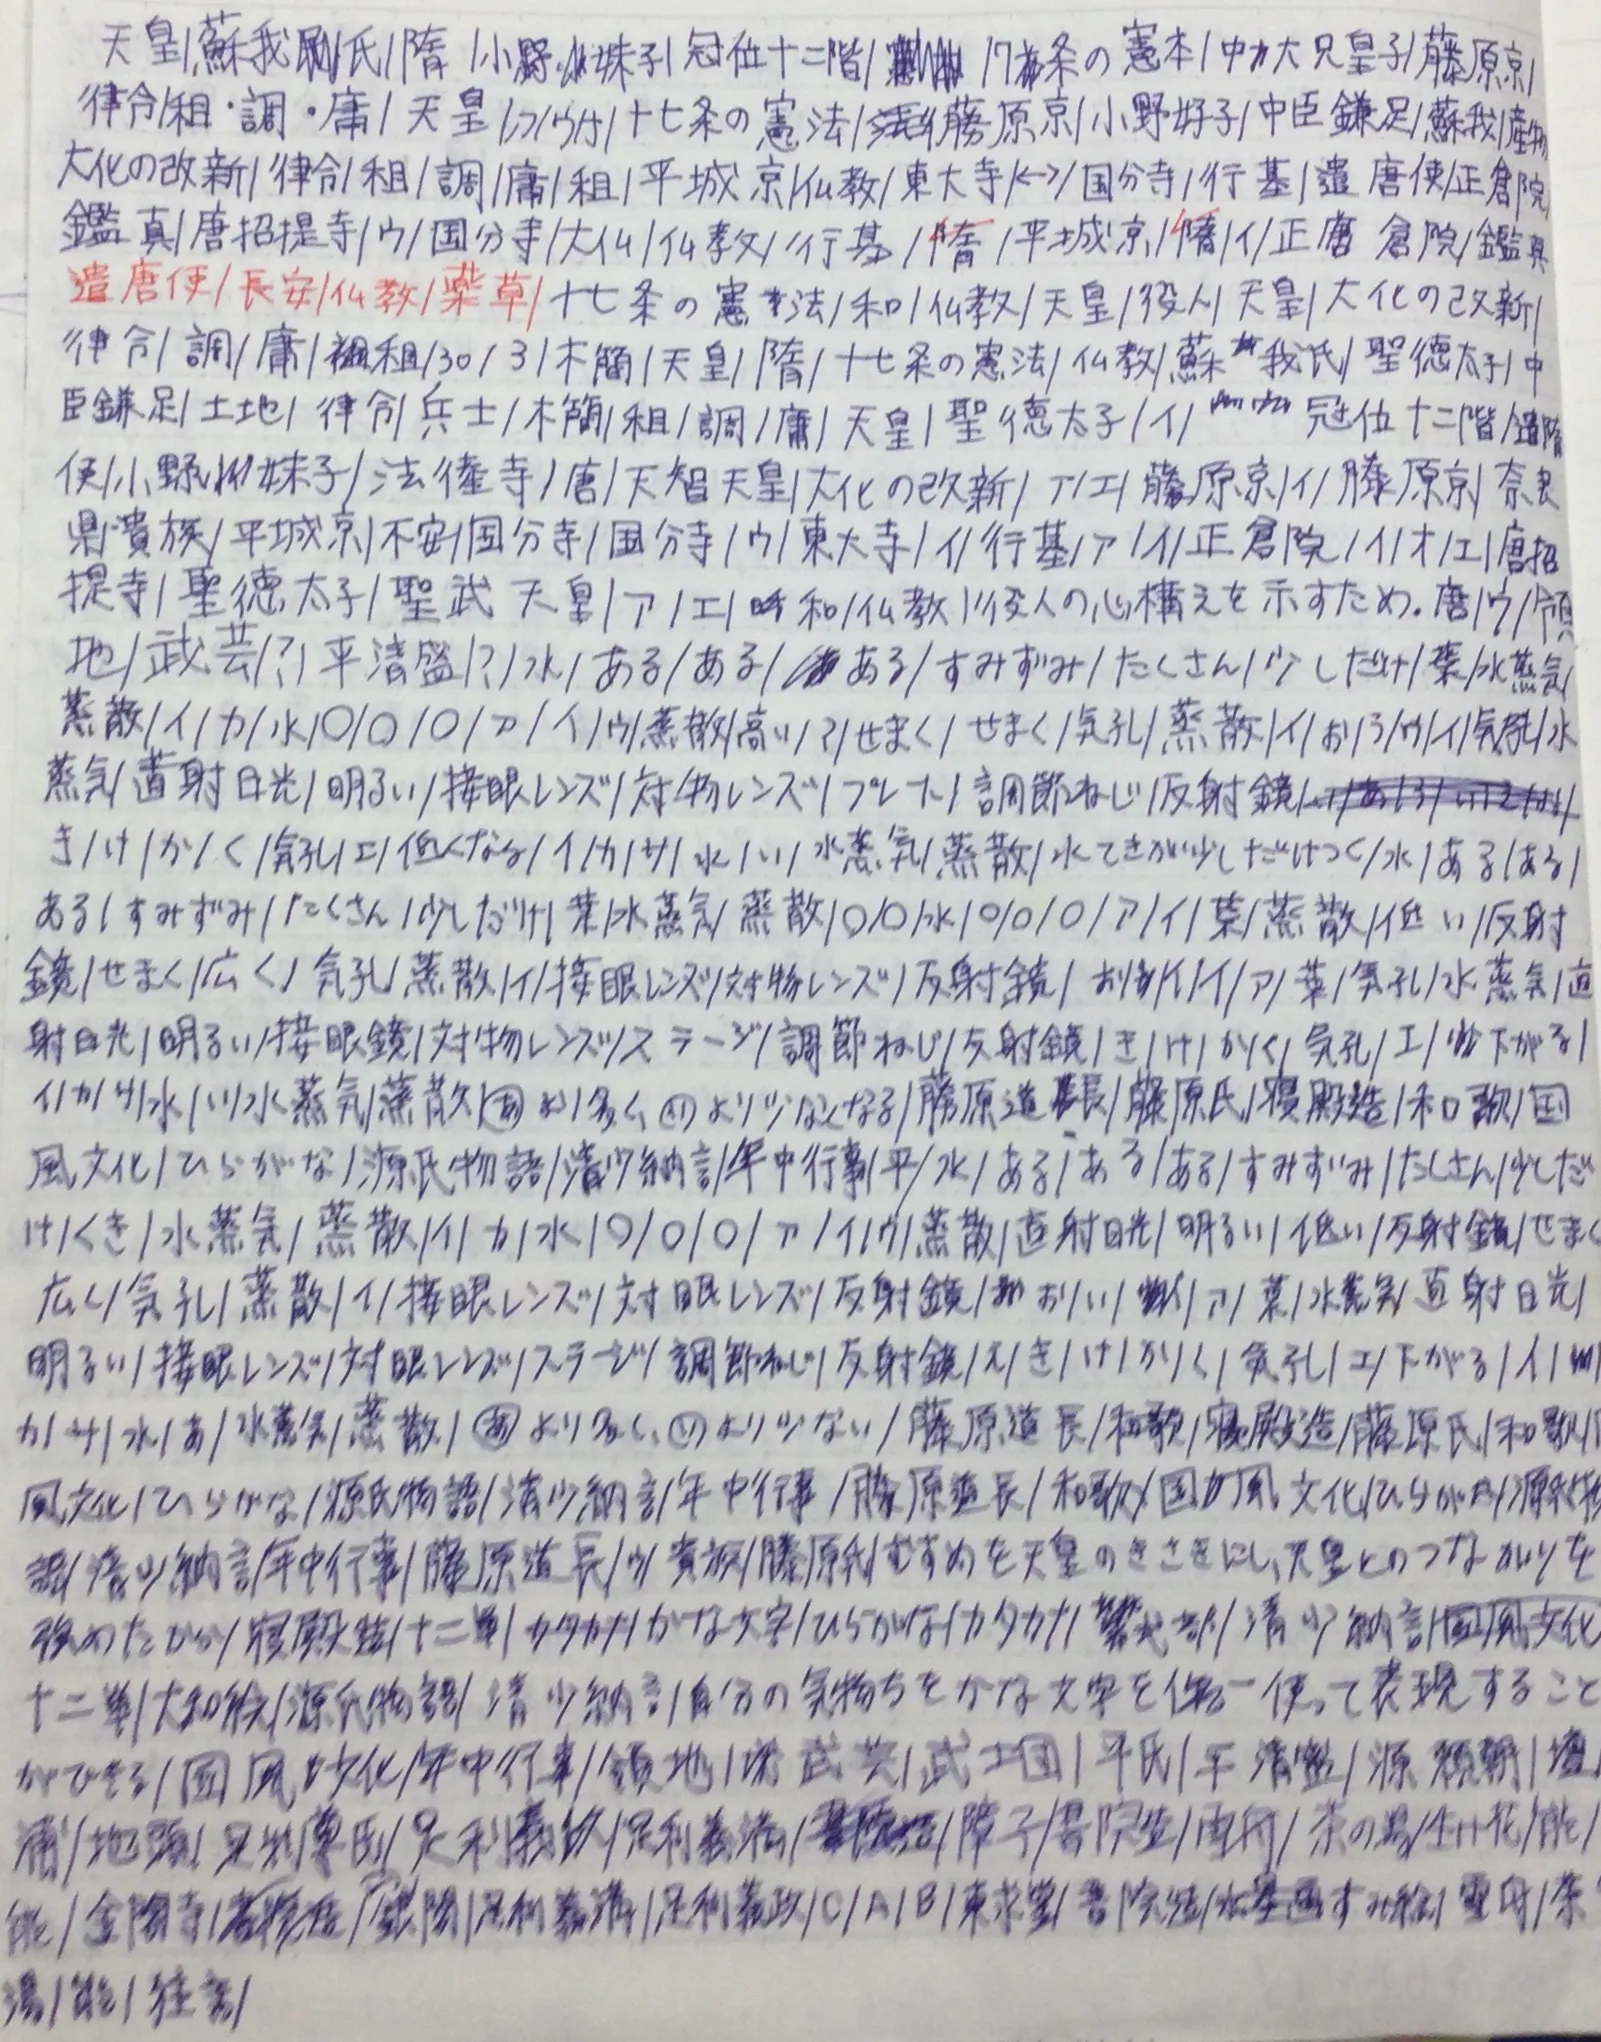 天皇/蘇我氏/隋/小野妹子/冠位十二階/17条の憲本/中大兄皇子/藤原京/
律令/租・調・庸/天皇/フ/ウ/オ/十七条の憲法/藤原京/小野好子/中臣鎌足/蘇我/産物
大化の改新/律令/租/調/庸/租/平城京/仏教/東大寺/↔/国分寺/行基/遣唐使/正倉院
鑑真/唐招提寺/ウ/国分寺/大仏/仏教/行基/隋/平城京/隋/イ/正唐倉院/鑑真
遣唐使/長安/仏教/薬草/十七条の憲法/和/仏教/天皇/役人/天皇/大化の改新/
律令/調/庸/租/30/3/木簡/天皇/隋/十七条の憲法/仏教/蘇我氏/聖徳太子/中
臣鎌足/土地/律令/兵士/木簡/租/調/庸/天皇/聖徳太子/イ/冠位十二階/遣隋
使/小野妹子/法隆寺/唐/天智天皇/大化の改新/ア/エ/藤原京/イ/藤原京/奈良
県/貴族/平城京/不安/国分寺/国分寺/ウ/東大寺/イ/行基/ア/イ/正倉院/イ/オ/エ/唐招
提寺/聖徳太子/聖武天皇/ア/エ/和/仏教/役人の心構えを示すため.唐/ウ/領
地/武芸/?/平清盛/?/水/ある/ある/ある/すみずみ/たくさん/少しだけ/葉/水蒸気/
蒸散/イ/カ/水/○/○/○/ア/イ/ウ/蒸散/高い/?/せまく/せまく/気孔/蒸散/イ/お/う/ウ/イ/気孔/水
蒸気/直射日光/明るい/接眼レンズ/対物レンズ/プレート/調節ねじ/反射鏡/
き/け/か/く/気孔/エ/低くなる/イ/カ/サ/水/い/水蒸気/蒸散/水てきが少しだけつく/水/ある/ある/
ある/すみずみ/たくさん/少しだけ/葉/水蒸気/蒸散/○/○/水/○/○/○/ア/イ/葉/蒸散/低い/反射
鏡/せまく/広く/気孔/蒸散/イ/接眼レンズ/対物レンズ/反射鏡/お/い/イ/ア/葉/気孔/水蒸気/直
射日光/明るい/接眼鏡/対物レンズ/ステージ/調節ねじ/反射鏡/き/け/か/く/気孔/エ/下がる/
イ/カ/サ/水/い/水蒸気/蒸散/㋐より多く、㋑より少なくなる/藤原道長/藤原氏/寝殿造/和歌/国
風文化/ひらがな/源氏物語/清少納言/年中行事/平/水/ある/ある/ある/すみずみ/たくさん/少しだ
け/くき/水蒸気/蒸散/イ/カ/水/○/○/○/ア/イ/ウ/蒸散/直射日光/明るい/低い/反射鏡/せまく
広く/気孔/蒸散/イ/接眼レンズ/対眼レンズ/反射鏡/お/い/イ/ア/葉/水蒸気/直射日光/
明るい/接眼レンズ/対眼レンズ/ステージ/調節ねじ/反射鏡/え/き/け/か/く/気孔/エ/下がる/イ/
カ/サ/水/あ/水蒸気/蒸散/より多く、より少ない/藤原道長/和歌/寝殿造/藤原氏/和歌/
風文化/ひらがな/源氏物語/清少納言/年中行事/藤原道長/和歌/国風文化/ひらがな/源氏物
語/清少納言/年中行事/藤原道長/ウ/貴族/藤原氏/むすめを天皇のきさきにし、天皇とのつながりを
強めたから/寝殿造/十二単/カタカナ/かな文字/ひらがな/カタカナ/紫式部/清少納言/国風文化
十二単/大和絵/源氏物語/清少納言/自分の気持ちをかな文字を使って表現すること
ができる/国風文化/年中行事/領地/武芸/武士団/平氏/平清盛/源頼朝/壇
浦/地頭/足利尊氏/足利義政/足利義満/障子/書院造/雪舟/茶の湯/生け花/能/
能/金閣寺/銀閣/足利義満/足利義政/C/A/B/東求堂/書院造/水墨画すみ絵/雪舟/茶
湯/能/狂言/